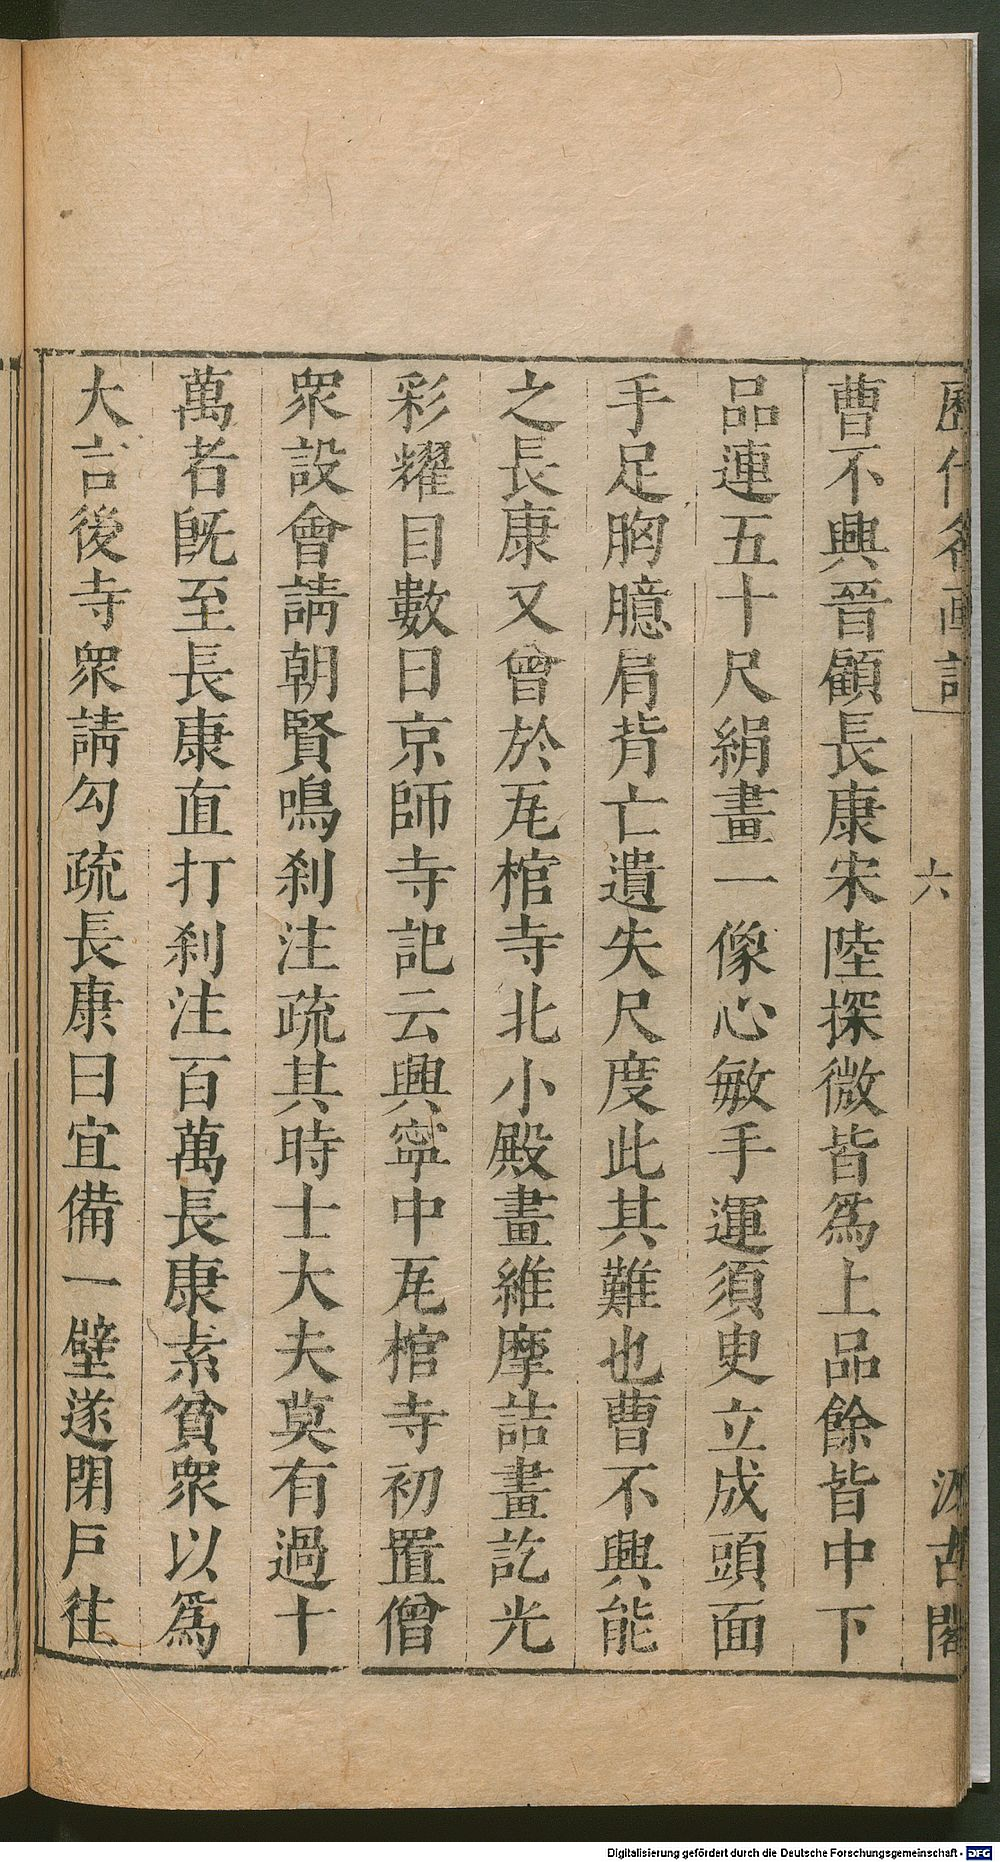 歷代名畫記 六 汲古閣
曹不興晉顧長康宋陸探微皆爲上品餘皆中下
品連五十尺絹畫一像心敏手運須臾立成頭面
手足胸臆肩背亡遺失尺度此其難也曹不興能
之長康又曾於瓦棺寺北小殿畫維摩詰畫訖光
彩耀目數日京師寺記云興寧中瓦棺寺初置僧
衆設會請朝賢鳴刹注疏其時士大夫莫有過十
萬者旣至長康直打刹注百萬長康素貧衆以爲
大言後寺衆請勾疏長康曰宜備一壁遂閉戶往
Digitalisierung gefördert durch die Deutsche Forschungsgemeinschaft - DFG